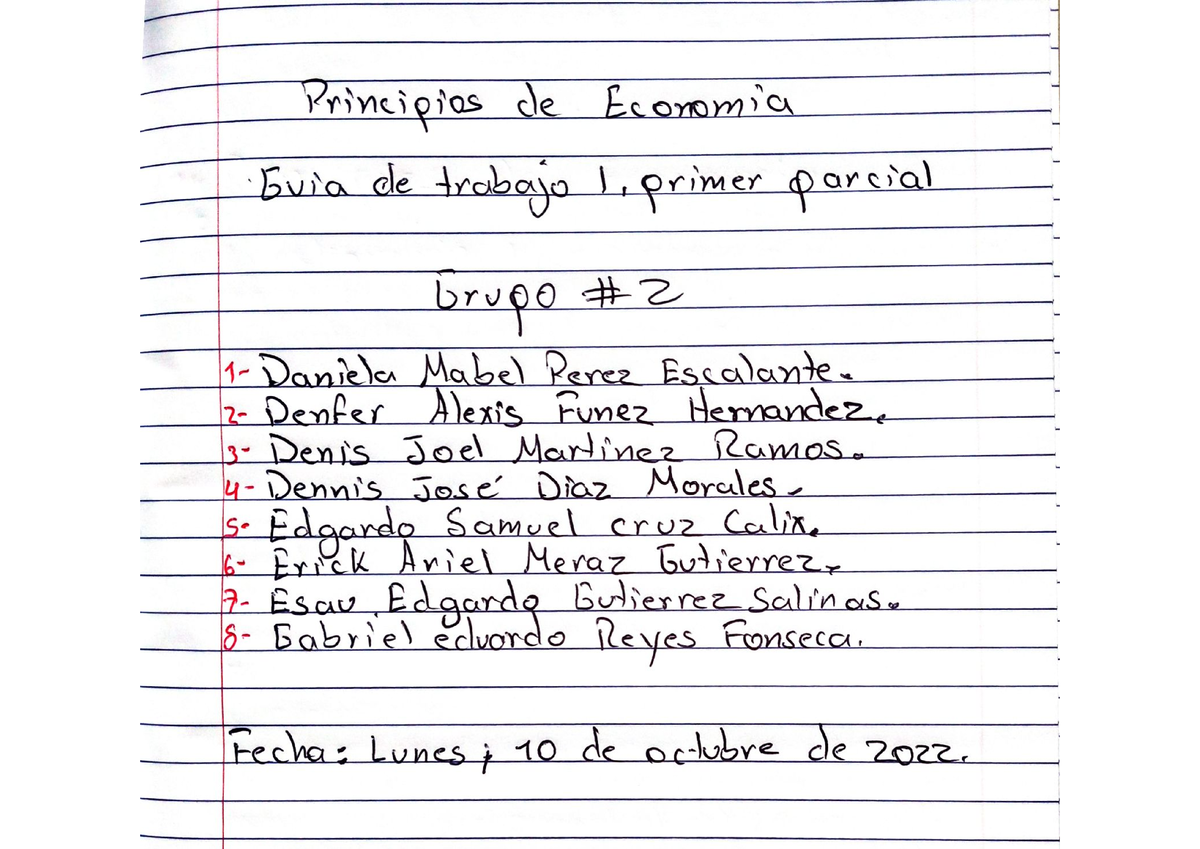 Principios de Economia
Guia de trabajo 1, primer parcial
Grupo # 2
1- Daniela Mabel Perez Escalante.
2- Denfer Alexis Funez Hernandez.
3- Denis Joel Martinez Ramos.
4- Dennis José Diaz Morales.
5- Edgardo Samuel cruz Calix.
6- Erick Ariel Meraz Gutierrez.
7- Esau Edgardo Gutierrez Salinas.
8- Gabriel eduardo Reyes Fonseca.
Fecha: Lunes; 10 de octubre de 2022.